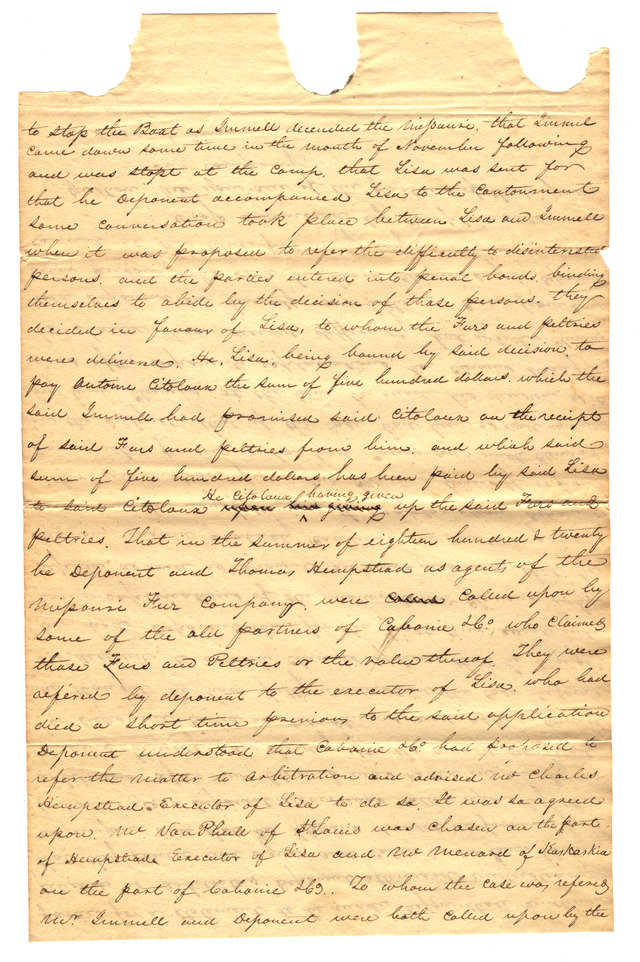 to stop the Boat as Immell decended the Missouri, that Immel
came down some time in the month of November following
and was stopt at the camp, that Lisa was sent for
that he Deponent accompanied Lisa to the Cantonment
some conversation took place between Lisa and Immell
when it was proposed to refer the difficulty to disinterested
persons, and the parties entered into penal bonds binding
themselves to abide by the decision of those persons. they
decided in favour of Lisa, to whom the Furs and peltries
were delivered, He, Lisa, being bound by said decision, to
pay Antoine Citoleux the sum of five hundred dollars, which the
said Immell had promised said Citoleux on the receipt
of said Furs and peltries from him, and which said
sum of five hundred dollars has been paid by said Lisa
to said Citoleux upon his giving He Citoleux having given up the said Furs and
peltries. That in the summer of eighteen hundred & twenty
he Deponent and Thomas Hempstead as agents of the
Missouri Fur Company, were called called upon by
some of the old partners of Cabanie &Co, who claimed
those Furs and Peltries or the value thereof. They were
refered by deponent to the executor of Lisa, who had
died a short time previous to the said application
Deponent understood that Cabanie &Co had proposed to
refer the matter to Arbitration and advised Mr Charles
Hempstead Executor of Lisa to do so, It was so agreed
upon, Mr VanPhull of St Louis was chosen on the part
of Hempstead Executor of Lisa and Mr Menard of Kaskaskia
on the part of Cabanie &Co. To whom the case was refered,
Mr Immell and Deponent were both called upon by the